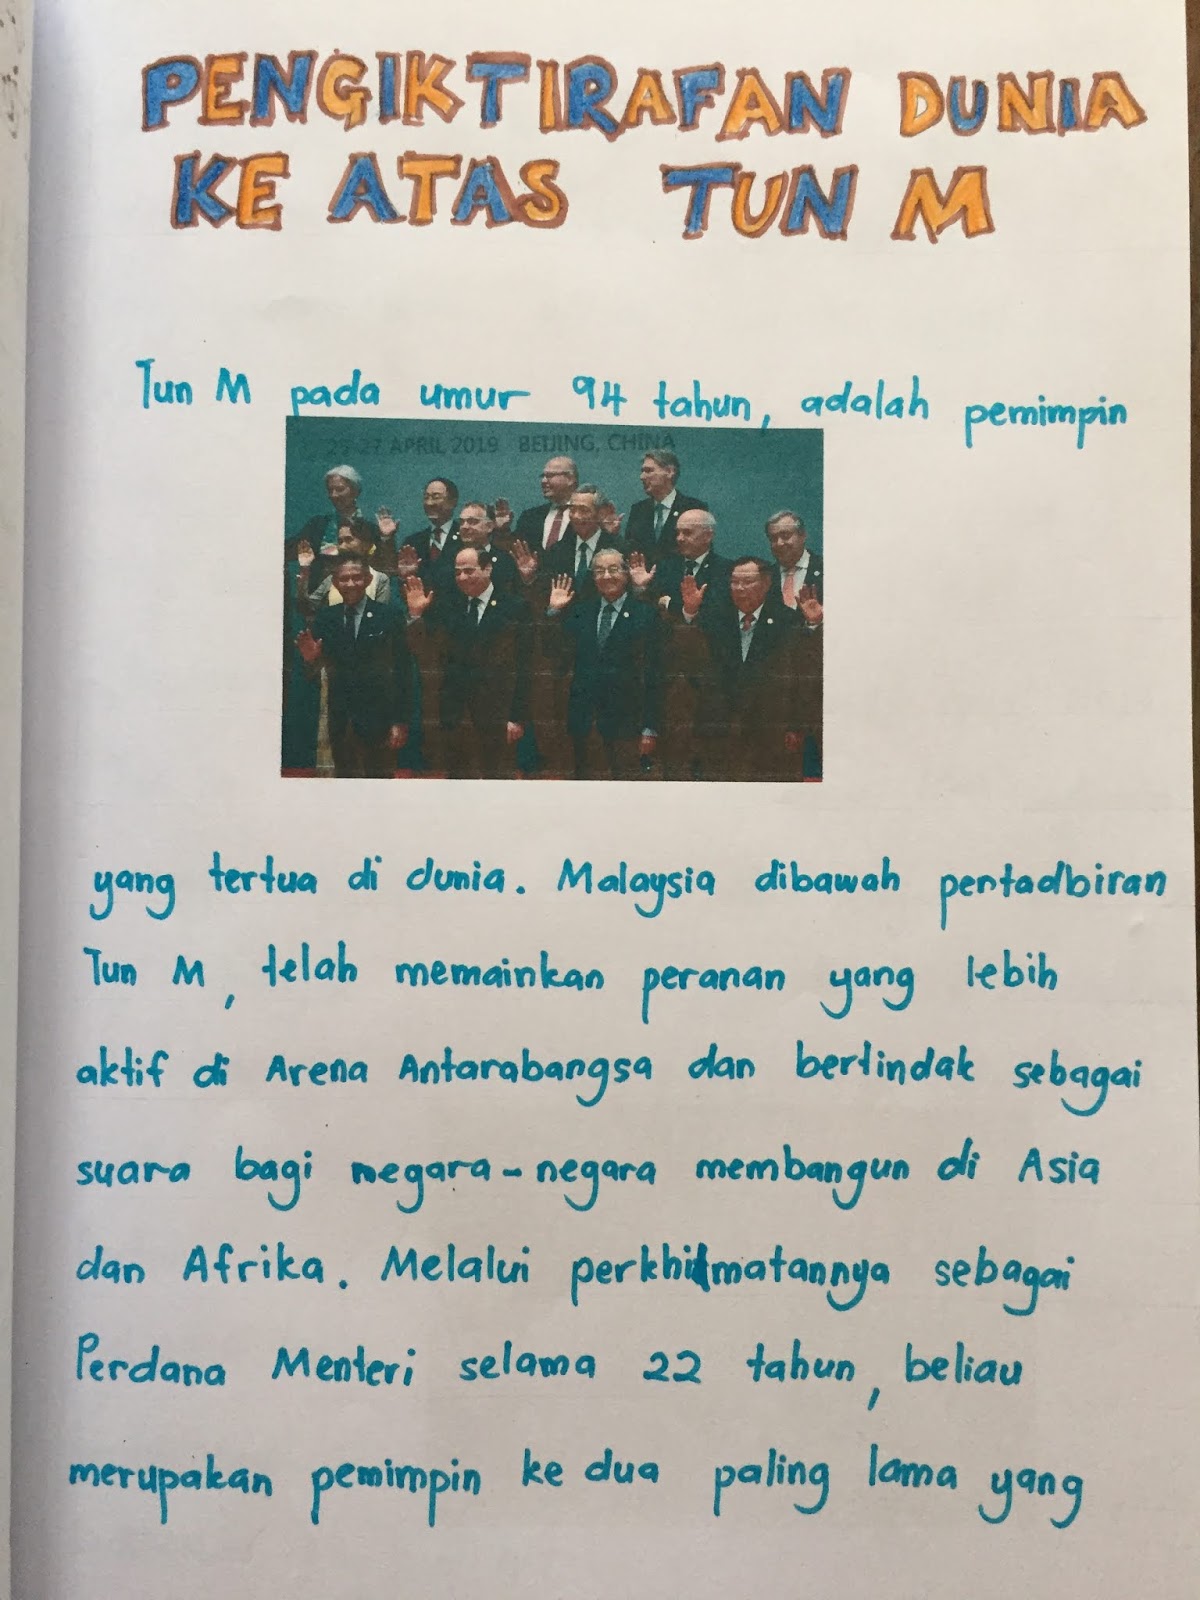 PENGIKTIRAFAN DUNIA
KE ATAS TUN M
Tun M pada umur 94 tahun, adalah pemimpin
27 APRIL 2019 BEIJING, CHINA
yang tertua di dunia. Malaysia dibawah pentadbiran
Tun M, telah memainkan peranan yang lebih
aktif di Arena Antarabangsa dan bertindak sebagai
suara bagi negara-negara membangun di Asia
dan Afrika. Melalui perkhidmatannya sebagai
Perdana Menteri selama 22 tahun, beliau
merupakan pemimpin ke dua paling lama yang